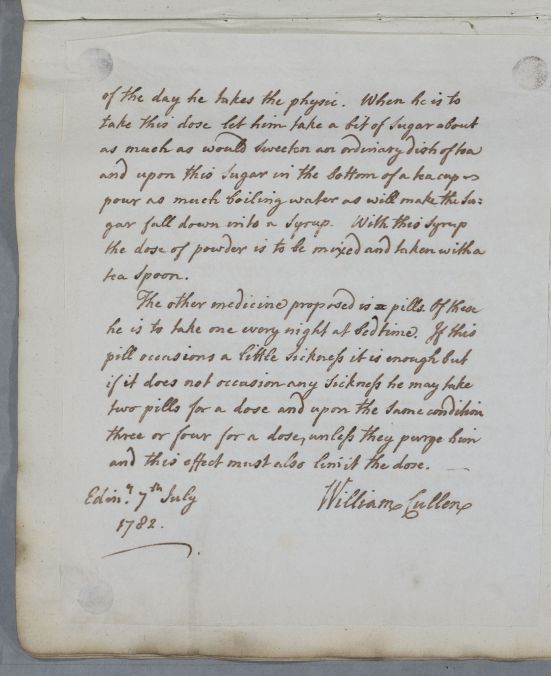 of the day he takes the physic. When he is to
take this dose let him take a bit of Sugar about
as much as would sweeten an ordinary dish of tea
and upon this Sugar in the bottom of a tea cup
pour as much boiling water as will make the Su=
gar fall down into a Syrup. With this Syrup
the dose of powder is to be mixed and taken with a
tea Spoon.
The other medicine proposed is pills. Of these
he is to take one every night at bedtime. If this
pill occasions a little Sickneſs it is enough but
if it does not occasion any Sickneſs he may take
two pills for a dose and upon the Same condition
three or four for a dose, unleſs they purge him
and this effect must also limit the dose.
Edinr. 7th July
1782.
William Cullen